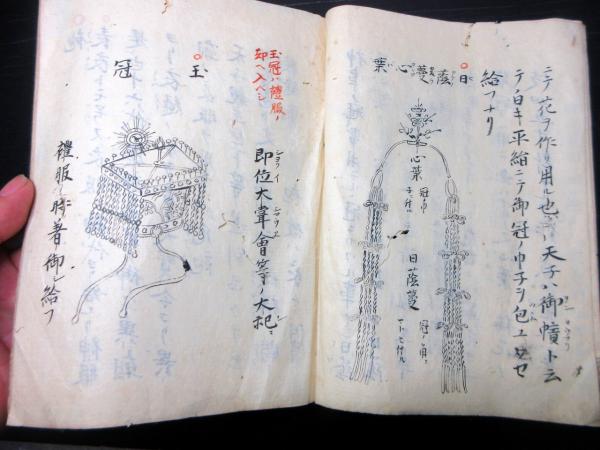 ニテ花ヲ作リ用ル也 天子ハ御幘ト云
テ白キ平絹ニテ御冠ノ巾子ヲ包
給フナリ
日蔭蔓心葉
心葉
冠ノ巾
子ニ付ル
日蔭蔓
冠ノ角ニ
即位大嘗會等ノ大祀ニ
玉冠ハ禮服ノ
部ヘ入ヘシ
玉冠
禮服ノ時着御シ給フ